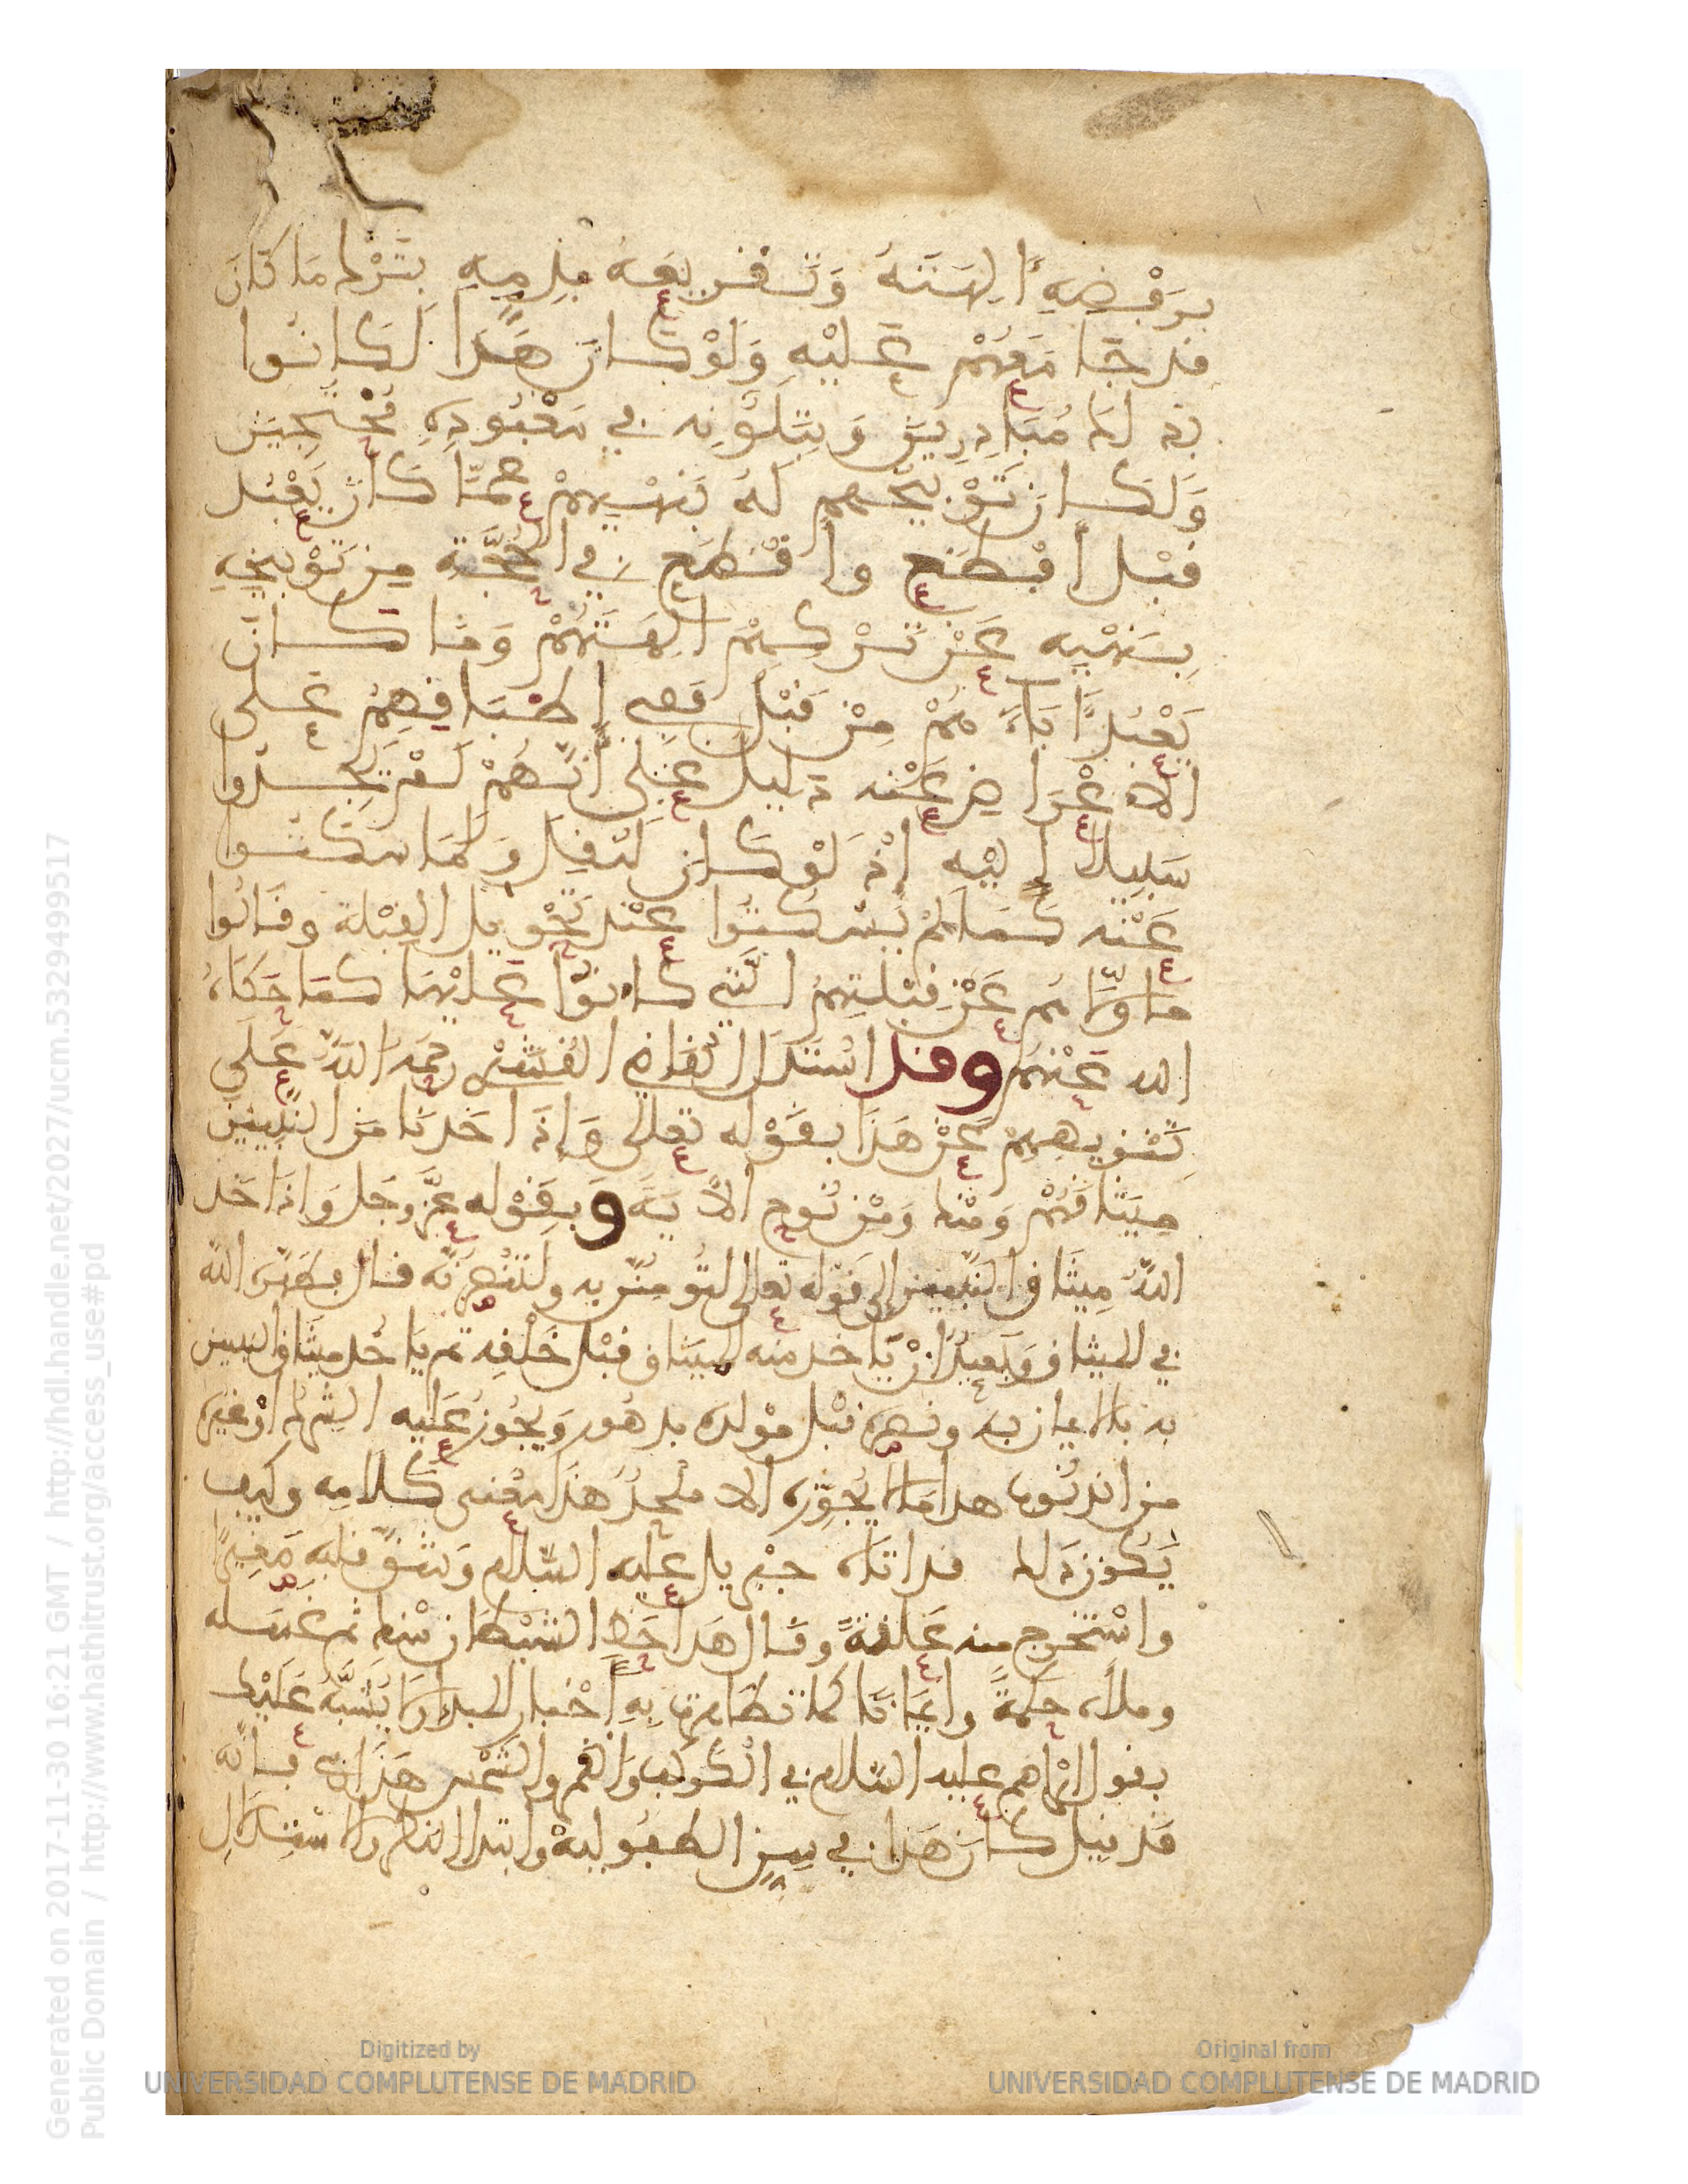 برفضه آلهته وتقريعه بذمه بترك ما كان
قد جامعهم عليه ولو كان هذا لكانوا
بذلك مبادرين وبتلونه في معبوده محتجين
ولكان توبيخهم له بنهيهم عما كان يعبد
قبل أفظع وأقطع في الحجة من توبيخه
بنهيه عن تركهم آلهتهم وما كان
يعبد آباؤهم من قبل ففي إطباقهم على
الاعراض عنه دليل على أنهم لم يجدوا
سبيلا إليه إذ لو كان لنقل ولما سكتوا
عنه كما لم يسكتوا عند تحويل القبلة وقالوا
ما ولاهم عن قبلتهم التي كانوا عليها كما حكاه
الله عنهم وقد استدل القاضي القشيري رحمه الله على
تنزيههم عن هذا بقوله تعالى وإذ أخذنا من النبيين
ميثاقهم ومنك ومن نوح الآية وبقوله عز وجل وإذ أخذ
الله ميثاق النبيين إلى قوله تعالى لتؤمنن به ولتنصرنه قال فطهره الله
في الميثاق وبعيد أن يأخذ منه الميثاق قبل خلقه ثم يأخذ ميثاق النبيين
به بالإيمان به ونصره قبل مولده بدهور ويجوز عليه الشرك أو غيره
من الذنوب هذا ما لا يجوزه إلا ملحد هذا معنى كلامه وكيف
يكون ذلك قد أتاه جبريل عليه السلام وشق قلبه صغيرا
واستخرج منه علقة وقال هذا حظ الشيطان منك ثم غسله
وملأه حكمة وإيمانا كما تظاهرت به أخبار المبدإ ولا يشبه عليك
بقول إبراهيم عليه السلام في الكوكب والقمر والشمس هذا ربي فإنه
قد قيل كان هذا في سن الطفولية وابتداء النظر والاستدلال
Generated on 2017-11-30 16:21 GMT / http://hdl.handle.net/2027/ucm.5329499517
Public Domain / http://www.hathitrust.org/access_use#pd
Digitized by
UNIVERSIDAD COMPLUTENSE DE MADRID
Original from
UNIVERSIDAD COMPLUTENSE DE MADRID